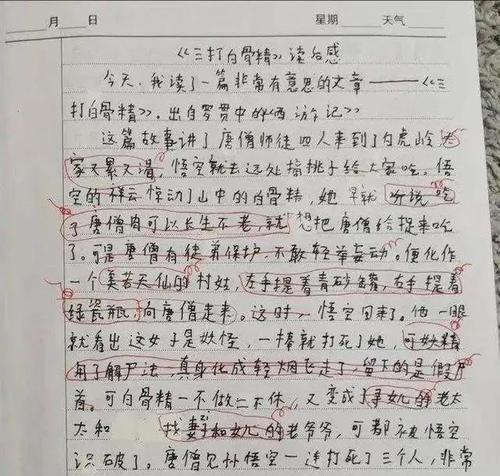 月 日 星期 天气
《三打白骨精》读后感
今天,我读了一篇非常有意思的文章——《三
打白骨精》.出自罗贯中的《西游记》
这篇故事讲了唐僧师徒四人来到了白虎岭老
家又累又渴,悟空就去远处摘桃子给大家吃。悟
空的祥云惊动了山中的白骨精,她早就听说吃
了唐僧肉可以长生不老,就想把唐僧给捉来吃
了。可是唐僧有徒弟保护,不敢轻举妄动。便化作
一个美若天仙的村姑,左手提着青砂罐,右手提着
绿瓷瓶,向唐僧走来。这时,悟空回来了。他一眼
就看出这女子是妖怪,一棒就打死了她,可妖精
用了解尸法,真身化成轻烟飞走了,留下的是假尸
首。可白骨精一不做二不休,又变成了寻女儿的老太
太和 找妻子和女儿的老爷爷,可都被悟空
识破了。唐僧见孙悟空一连打死了三个人,非常